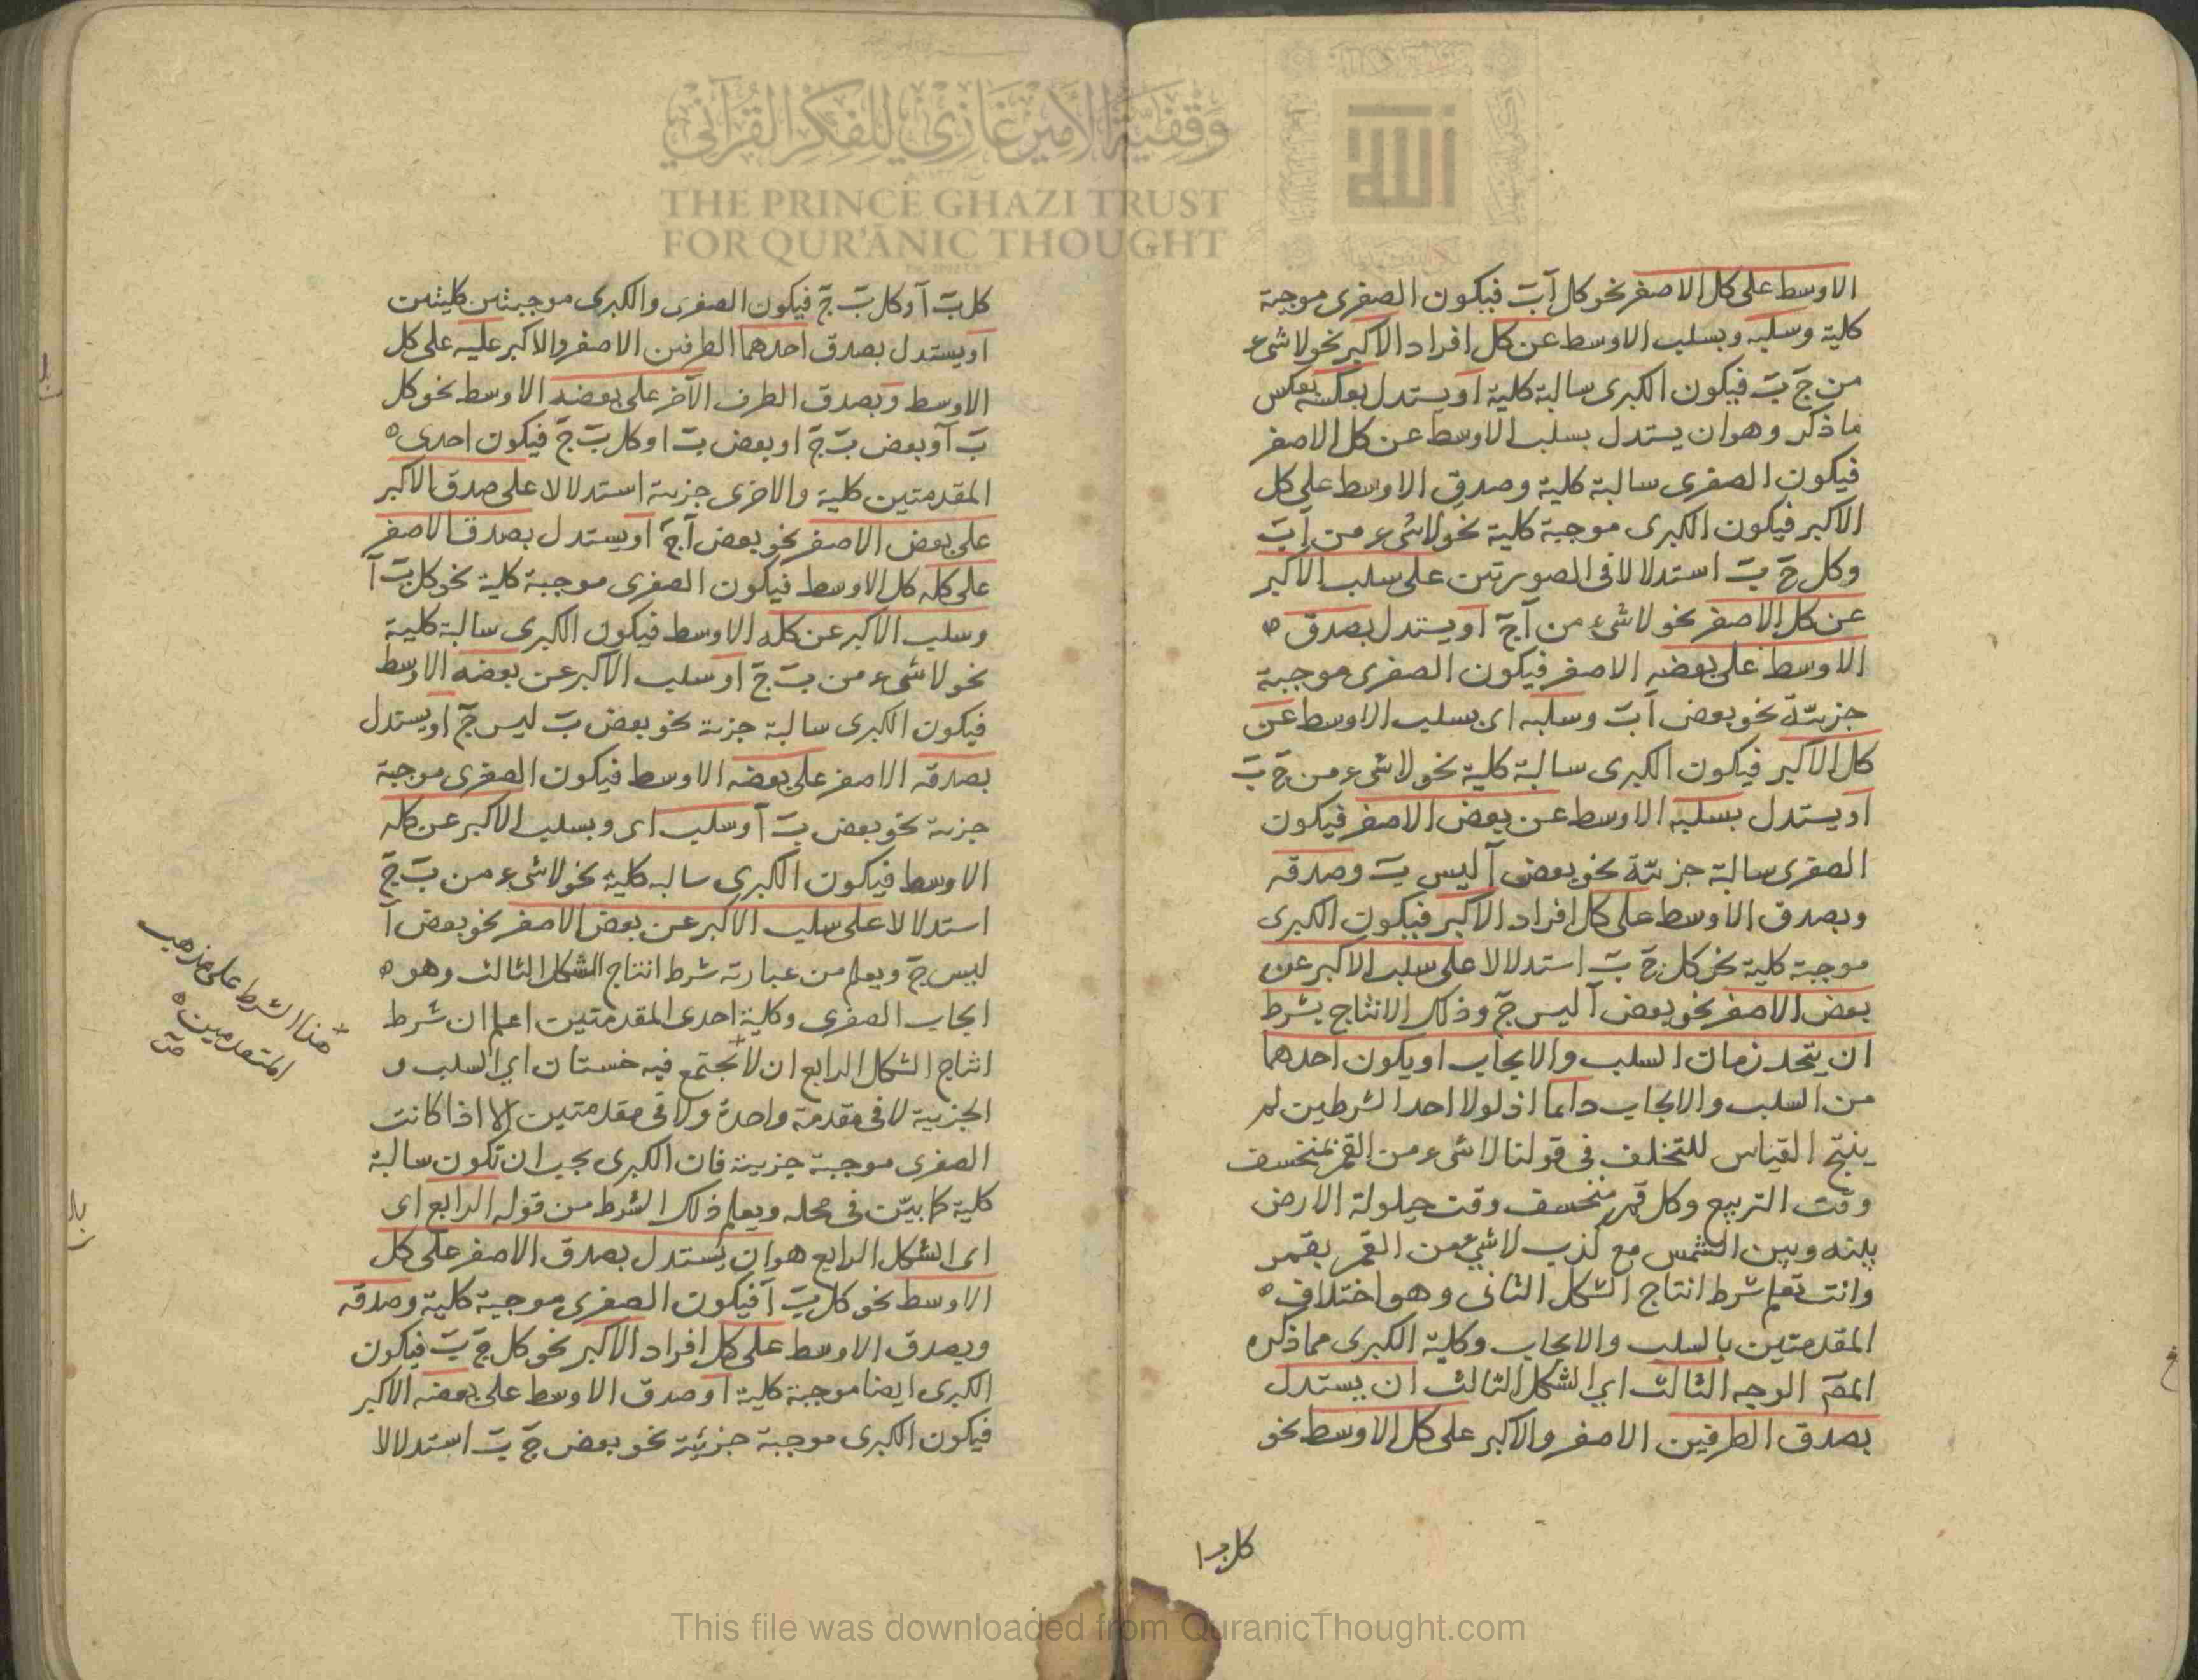 الاوسط على كل الاصغر نحو كل آ بَ فيكون الصغرى موجبة
كلية وسلبه وبسلب الاوسط عن كل افراد الاكبر نحو لا شىء
من جَ بَ فيكون الكبرى سالبة كلية او يستدل بعكسه بعكس
ما ذكر وهو ان يستدل بسلب الاوسط عن كل الاصغر
فيكون الصغرى سالبة كلية وصدق الاوسط على كل
الاكبر فيكون الكبرى موجبة كلية نحو لا شىء من آ بَ
وكل جَ بَ استدلالا فى الصورتين على سلب الاكبر
عن كل الاصغر نحو لا شىء من آ جَ او يستدل بصدق
الاوسط على بعضه الاصغر فيكون الصغرى موجبة
جزئية نحو بعض آ بَ وسلبه اى بسلب الاوسط عن
كل الاكبر فيكون الكبرى سالبة كلية نحو لا شىء من جَ بَ
او يستدل بسلبه الاوسط عن بعض الاصغر فيكون
الصغرى سالبة جزئية نحو بعض آ ليس بَ وصدقه
وبصدق الاوسط على كل افراد الاكبر فيكون الكبرى
موجبة كلية نحو كل جَ بَ استدلالا على سلب الاكبر عن
بعض الاصغر نحو بعض آ ليس جَ وذلك الانتاج بشرط
ان يتحد زمان السلب والايجاب او يكون احدهما
من السلب والايجاب دائما اذ لولا احد الشرطين لم
ينتج القياس للتخلف فى قولنا لا شىء من القمر بمنخسف
وقت التربيع وكل قمر منخسف وقت حيلولة الارض
بينه وبين الشمس مع كذب لا شئ من القمر بقمر
وانت تعلم شرط انتاج الشكل الثانى وهو اختلاف
المقدمتين بالسلب والايجاب وكلية الكبرى مما ذكره
المصَ الوجه الثالث اي الشكل الثالث ان يستدل
بصدق الطرفين الاصغر والاكبر على كل الاوسط نحو
كل ب ا
كل بَ آ وكل بَ جَ فيكون الصغرى والكبرى موجبتين كليتين
او يستدل بصدق احدهما الطرفين الاصغر والاكبر عليه على كل
الاوسط وبصدق الطرف الآخر على بعضه الاوسط نحو كل
بَ آ وبعض بَ جَ او بعض بَ ا وكل بَ جَ فيكون احدى
المقدمتين كلية والاخرى جزية استدلالا على صدق الاكبر
على بعض الاصغر نحو بعض آ جَ او يستدل بصدق الاصغر
على كله كل الاوسط فيكون الصغرى موجبة كلية نحو كل بَ آ
وسلب الاكبر عن كله الاوسط فيكون الكبرى سالبة كلية
نحو لا شىء من بَ جَ او سلب الاكبر عن بعضه الاوسط
فيكون الكبرى سالبة جزية نحو بعض بَ ليس جَ او يستدل
بصدقه الاصغر على بعضه الاوسط فيكون الصغرى موجبة
جزية نحو بعض بَ آ وسلب اى وبسلب الاكبر عن كله
الاوسط فيكون الكبرى سالبه كلية نحو لا شىء من بَ جَ
استدلالا على سلب الاكبر عن بعض الاصغر نحو بعض آ
ليس جَ ويعلم من عبارته شرط انتاج الشكل الثالث وهو
ايجاب الصغرى وكلية احدى المقدمتين اعلم ان شرط
انتاج الشكل الرابع ان لا يجتمع فيه خستان اي السلب و
الجزيية لا فى مقدمة واحدة ولا فى مقدمتين الا اذا كانت
الصغرى موجبة جزيية فان الكبرى يجب ان تكون سالبة
كلية كما بيّن فى محله ويعلم ذلك الشرط من قوله الرابع اى
اى الشكل الرابع هو ان يستدل بصدق الاصغر على كل
الاوسط نحو كل بَ آ فيكون الصغرى موجبة كلية وصدقه
وبصدق الاوسط على كل افراد الاكبر نحو كل جَ بَ فيكون
الكبرى ايضا موجبة كلية او صدق الاوسط على بعضه الاكبر
فيكون الكبرى موجبة جزئية نحو بعض جَ بَ استدلالا
هذا الشرط على مذهب
المتقدمين
وقفية الأمير غازي للفكر القرآني
THE PRINCE GHAZI TRUST
FOR QUR'ĀNIC THOUGHT
This file was downloaded from QuranicThought.com